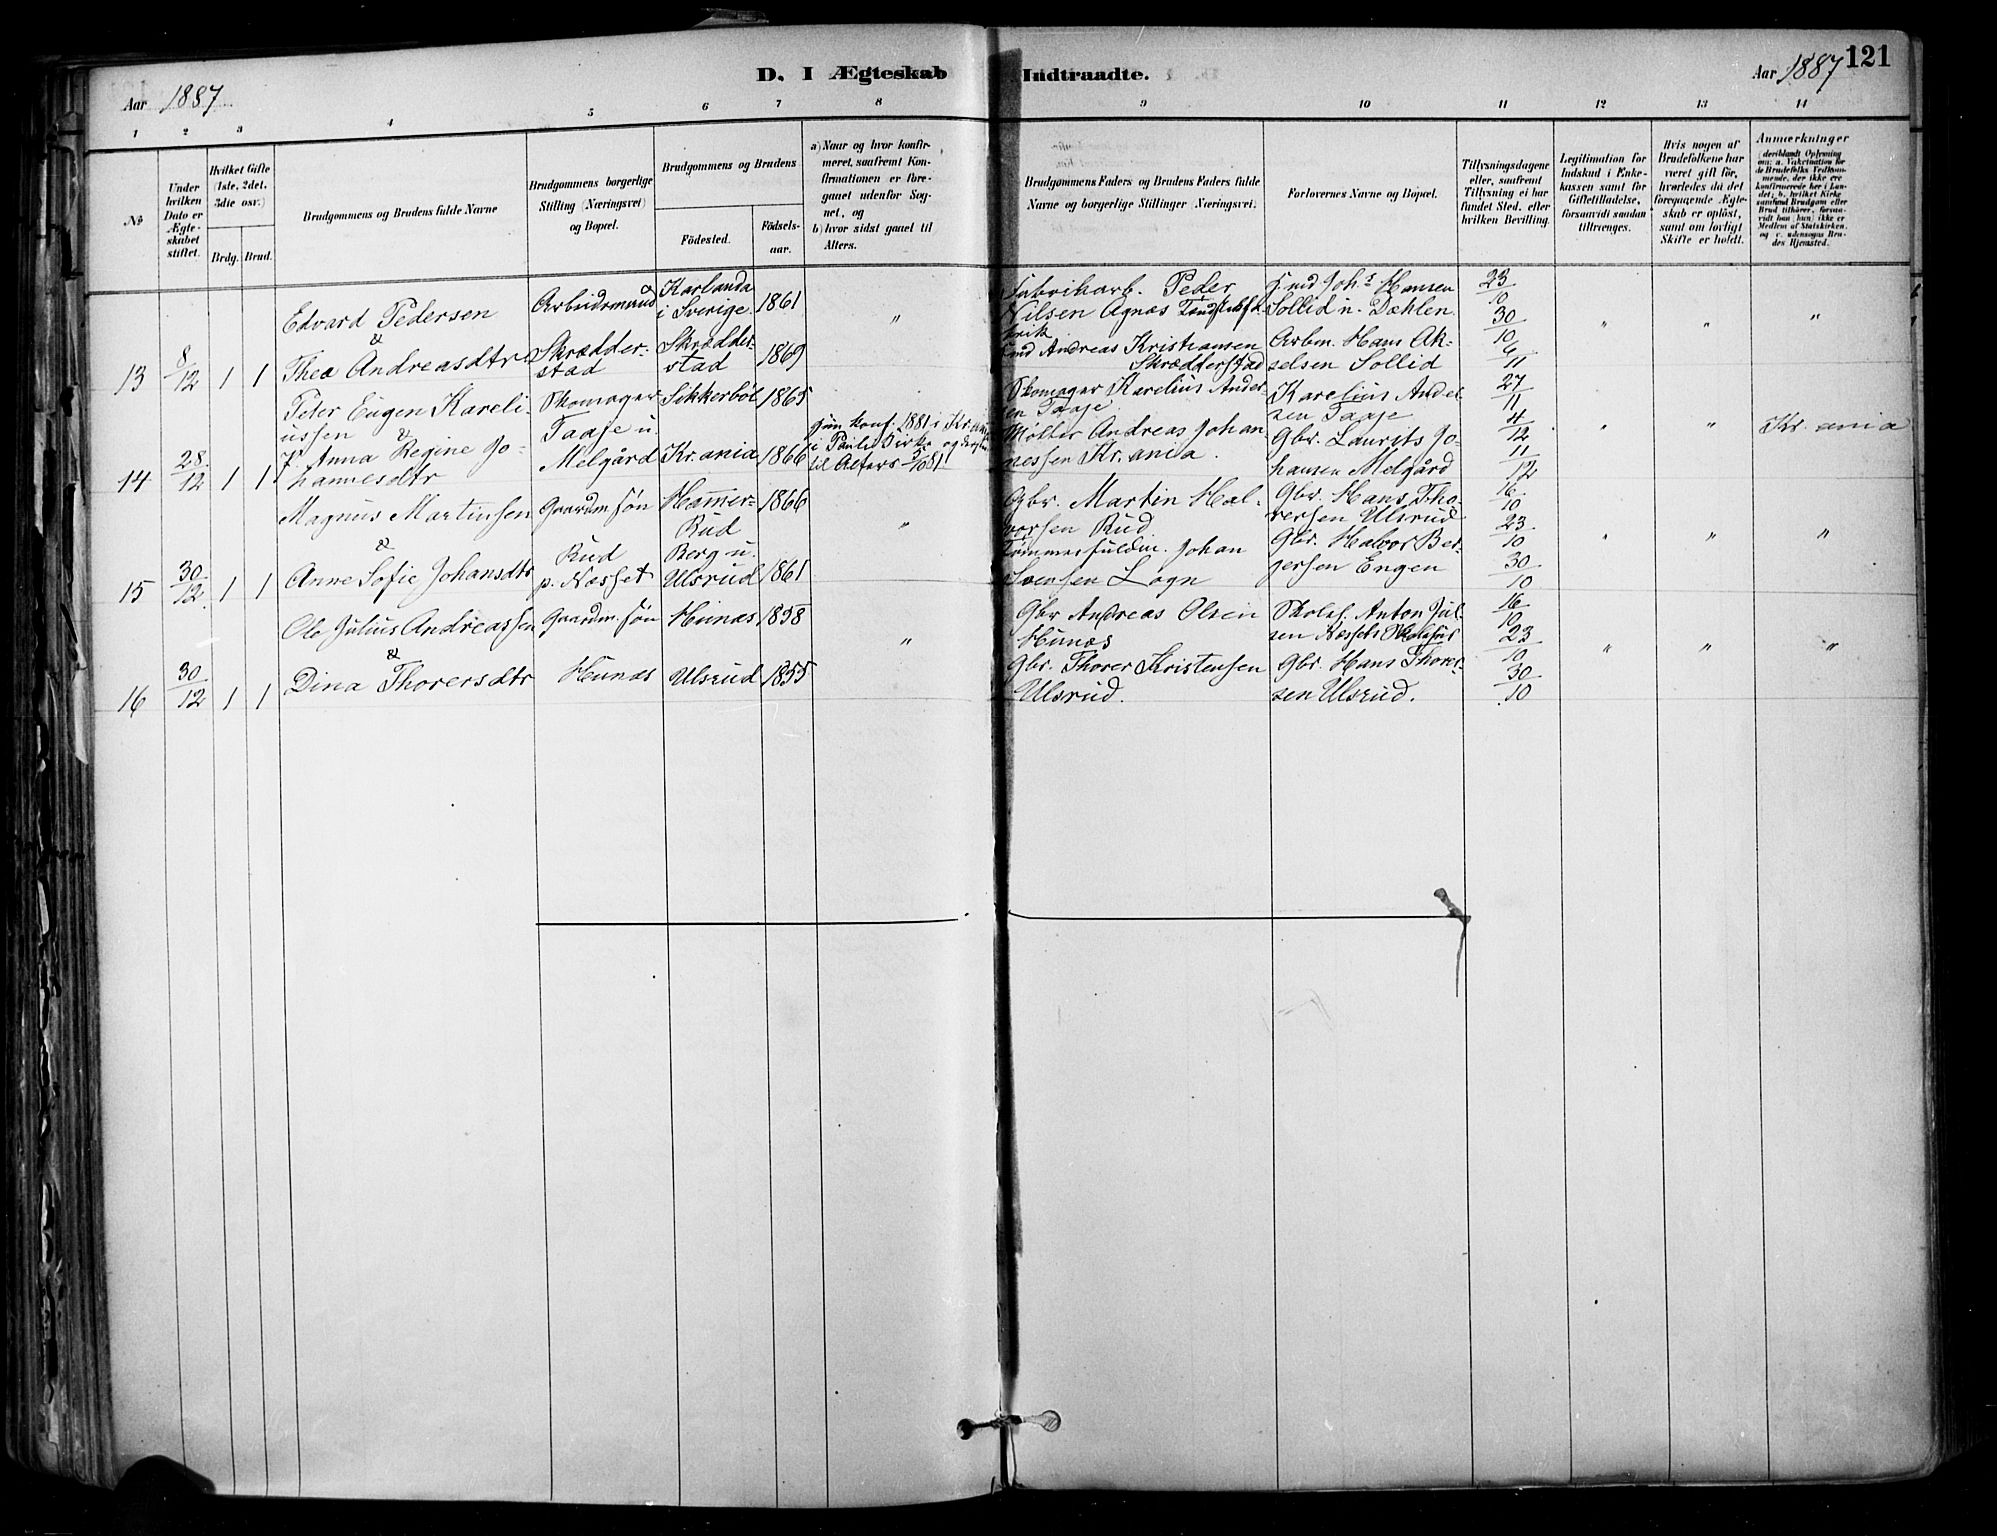 D. I Ægteskab Indtraadte.
Aar 1887
Aar 1887
121
1 2 3 4 5 6 7 8 9 10 11 12 13 14
No
Under hvilken Dato er Ægteskabet stiftet.
Hvilket Gifte (1ste, 2det, 3die osv.)
Brdg. Brud.
Brudgommens og Brudens fulde Navne
Brudgommens borgerlige Stilling (Næringsvei) og Bopæl.
Brudgommens og Brudens
Fødested.
Fødselsaar.
a) Naar og hvor konfirmeret, saafremt Konfirmationen er foregaaet udenfor Sognet, og
b) hvor sidst gaaet til Alters.
Brudgommens Faders og Brudens Faders fulde Navne og borgerlige Stillinger (Næringsvei).
Forlovernes Navne og Bopæl.
Tillysningsdagene eller, saafremt Tillysning ei har fundet Sted, efter hvilken Bevilling.
Legitimation for Indskud i Enkekassen samt for Giftetilladelse, forsaavidt saadan tiltrænges.
Hvis nogen af Brudefolkene har været gift før, hvorledes da det foregaaende Ægteskab er opløst, samt om lovligt Skifte er holdt.
Anmærkninger
(deriblandt Oplysning om: a. Vakcination for de Brudefolks Vedkommende, der ikke ere konfirmerede her i Landet; b. hvilket Kirkesamfund Brudgom eller Brud tilhører, forsaavidt han (hun) ikke er Medlem af Statskirken, og c. udensogns Brudes Hjemsted.
13 8/12 1 1
Edvard Pedersen
&
Thea Andreasdtr.
Arbeidsmand
Skrædderstad
Karlanda i Sverige 1861
Skrædderstad 1869
"
Fabrikarb. Peder
Nilsen Agnæs
Gmd Andreas Kristiansen
Skrædderstad
Gmd Johs Hansen
Sollid u. Dæhlen
Arbm. Hans Akselsen Sollid
23/10
30/10
6/11
" " "
14 28/12 1 1
Peter Eugen Kareliussen
&
P. Anna Regine Johannesdtr
Skomager
Taaje u.
Melgård
Sikkerbøl 1865
Kr.ania 1866
konf. 1881 i Kr.ania
i Pauls Kirke og
til Alters 81
Skomager Karelius Andersen Taaje
Møller Andreas Johannessen Kr.ania.
Karelius Andersen Taaje
Gbr. Laurits Johansen Melgård
27/11
4/12
11/12
" " Kr.ania
15 30/12 1 1
Magnus Martinsen
&
Anne Sofie Johansdtr
Gaardm. søn
Rud
p. Næsset
Hamer-
Rud 1866
Berg u.
Ulsrud 1861
"
Gbr. Martin Halvorsen Rud
Tømmerfuldm. Johan
Svensen Løgn
Gbr. Hans Thorersen Ulsrud
Gbr. Halvor Bergersen Engen
16/10
23/10
30/10
" " "
16 30/12 1 1
Ole Julius Andreassen
&
Dina Thorersdtr
Gaardm. søn
Hunæs
Hunæs 1858
Ulsrud 1855
"
Gbr Andreas Olsen
Hunæs
Gbr. Thorer Kristensen
Ulsrud.
Skolel. Anton Julsen Næssets Skolehus
Gbr. Hans Thorersen Ulsrud.
16/10
23/10
30/10
" " "